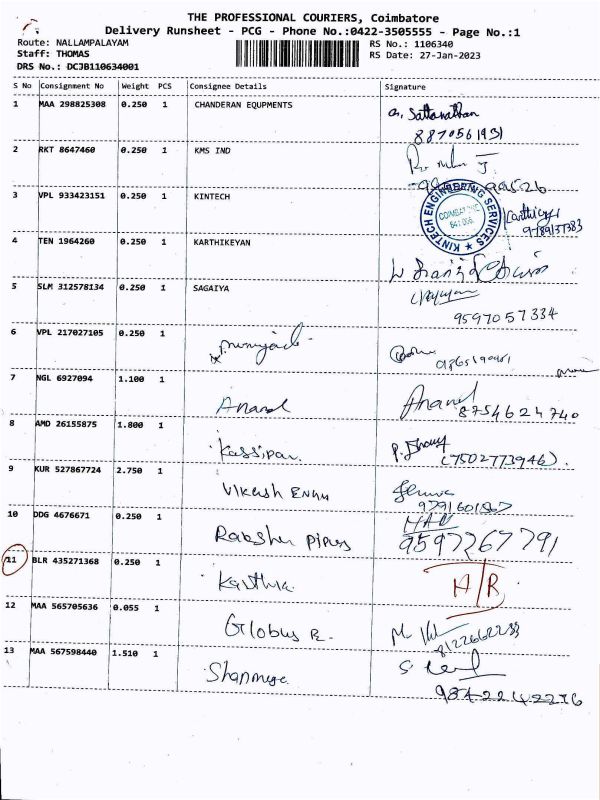 THE PROFESSIONAL COURIERS, Coimbatore
Delivery Runsheet - PCG - Phone No.:0422-3505555 - Page No.:1
Route: NALLAMPALAYAM
RS No.: 1106340
Staff: THOMAS
RS Date: 27-Jan-2023
DRS No.: DCJB110634001
S No Consignment No Weight PCS Consignee Details Signature
1 MAA 298825308 0.250 1 CHANDERAN EQUPMENTS
8870561931
2 RKT 8647460 0.250 1 KMS IND
3 VPL 933423151 0.250 1 KINTECH
KINTECH ENGINEERING SERVICES
COIMBATORE
9789137383
4 TEN 1964260 0.250 1 KARTHIKEYAN
5 SLM 312578134 0.250 1 SAGAIYA
9597057334
6 VPL 217027105 0.250 1
7 NGL 6927094 1.100 1 Anand Anand
8754624740
8 AMD 26155875 1.800 1 Kassipan
(7502773946).
9 KUR 527867724 2.750 1 Vikash Engg
9791601867
10 DDG 4676671 0.250 1 Pipes
9597267791
11 BLR 435271368 0.250 1 Karthik A/R
12 MAA 565705636 0.055 1 Globus
8122662233
13 MAA 567598440 1.510 1 Shanmuga
9842242276